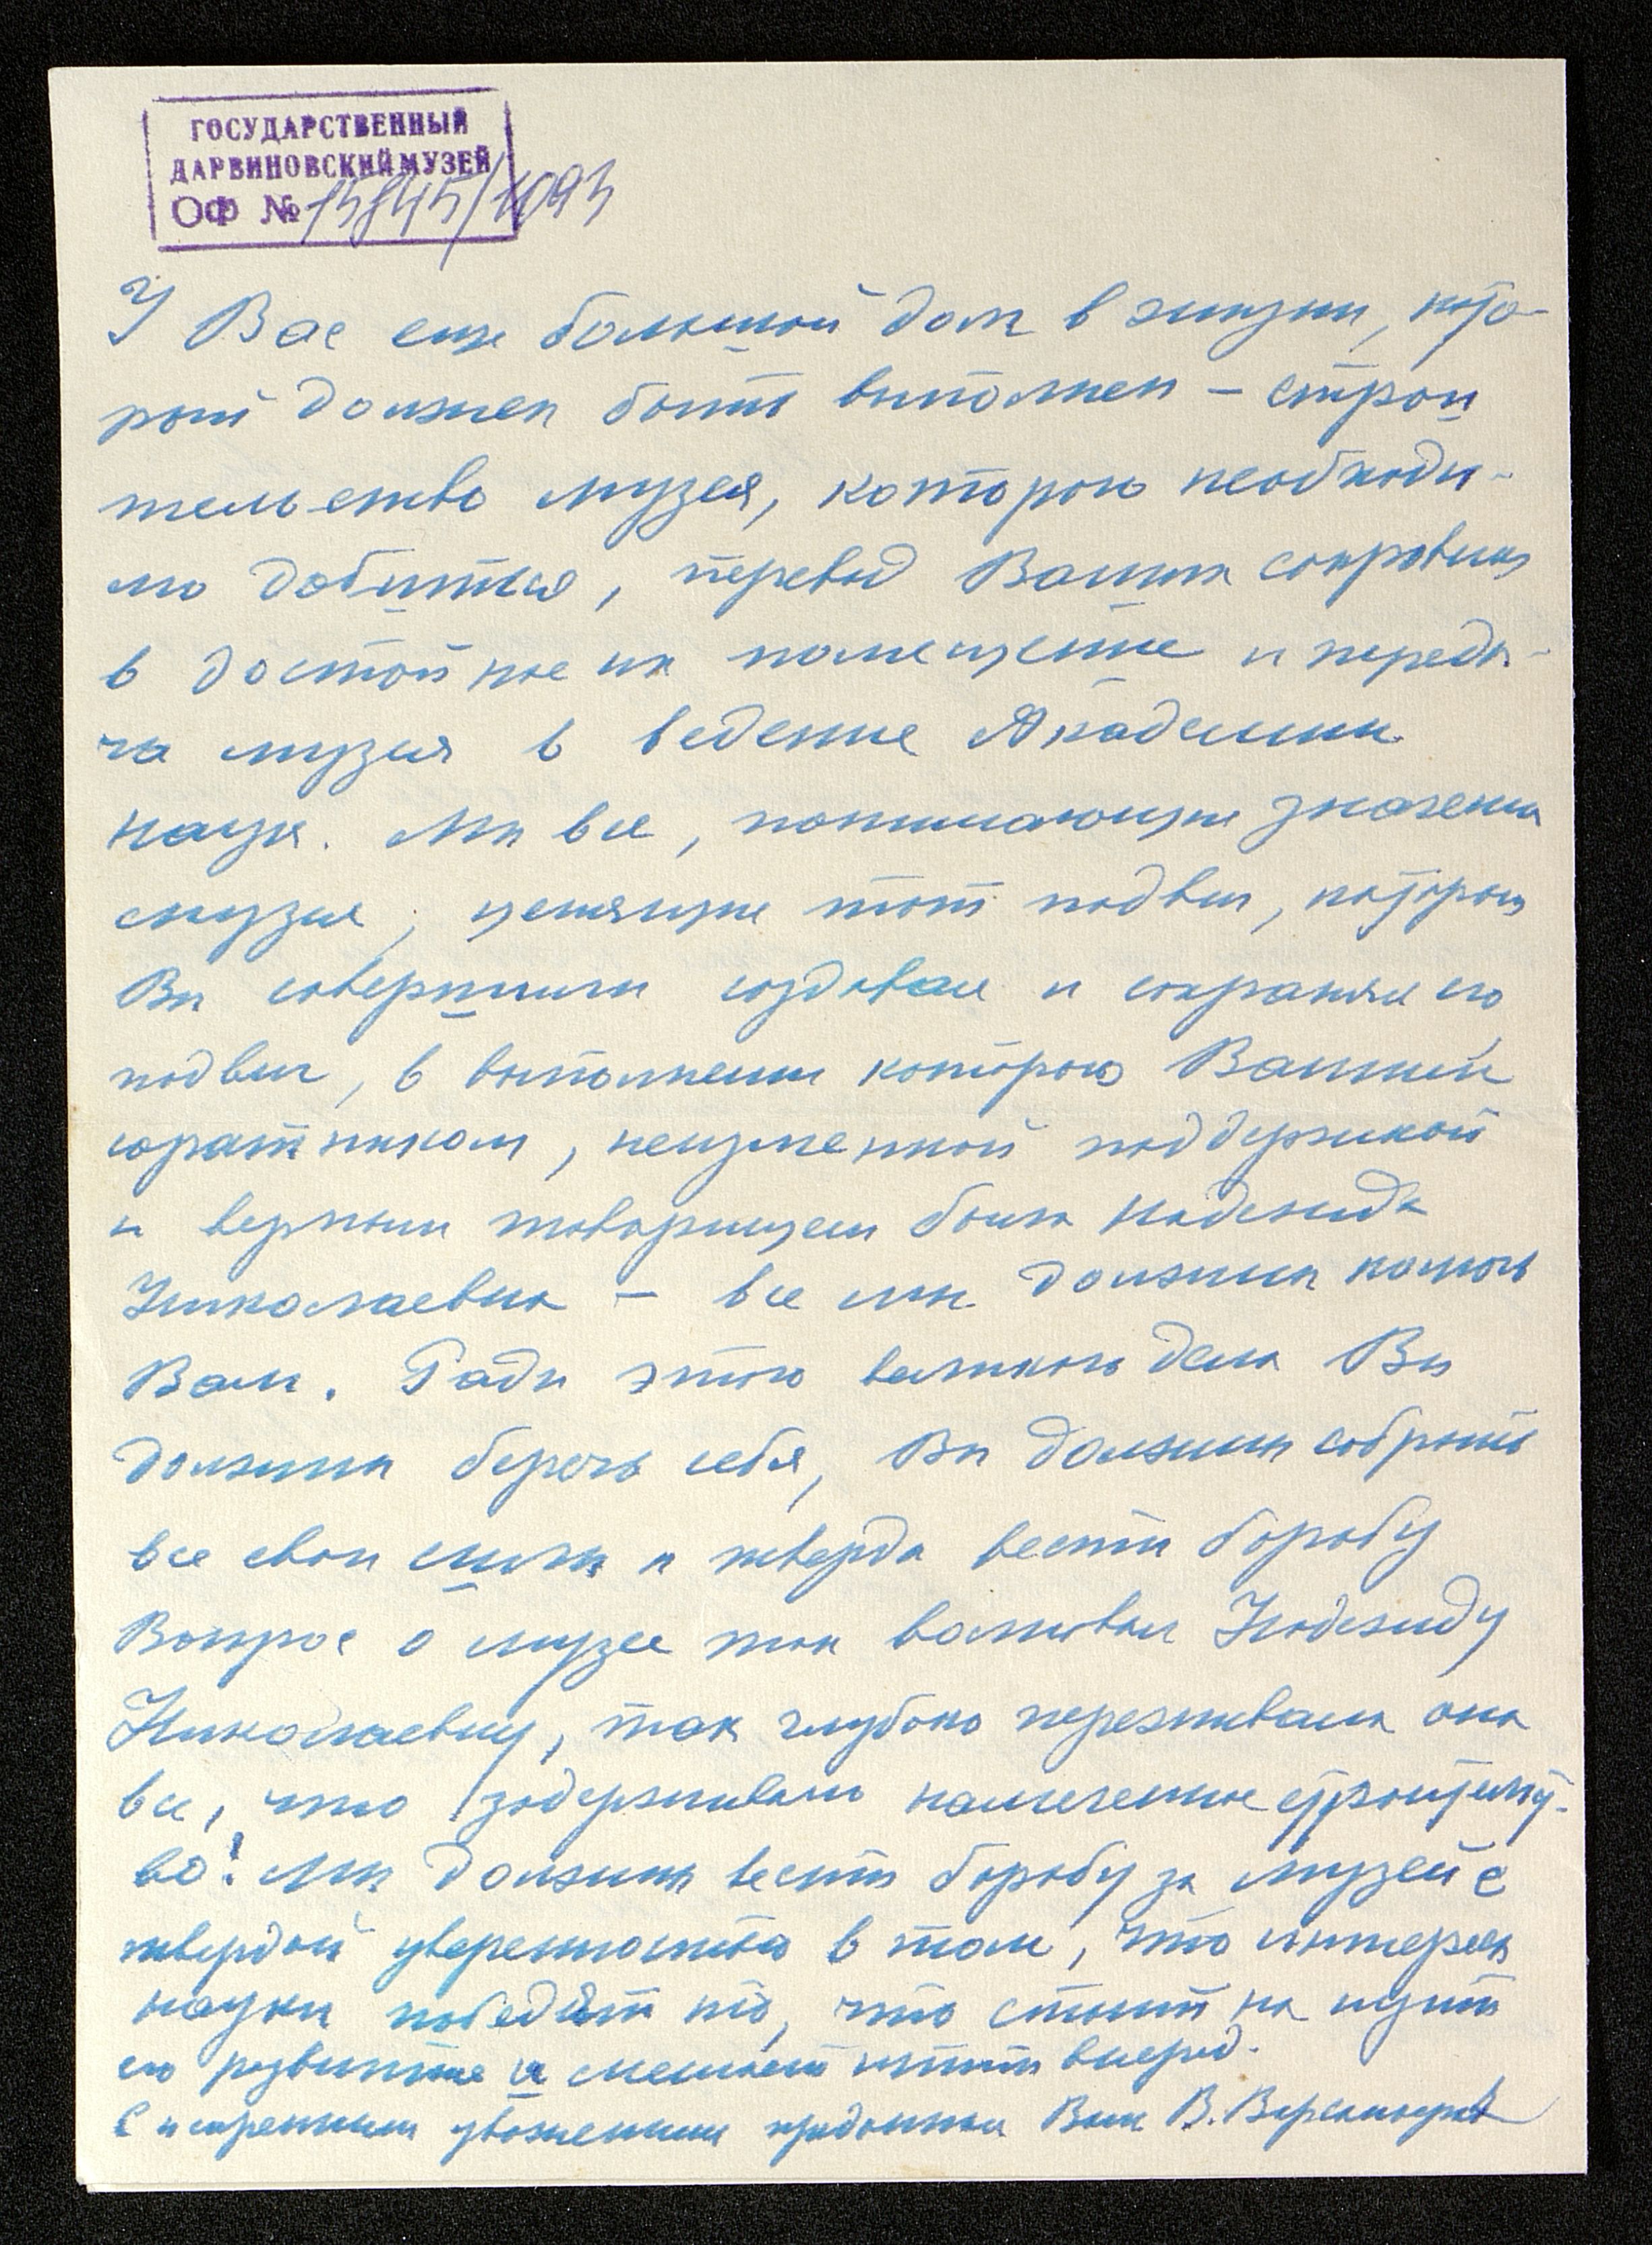 ГОСУДАРСТВЕННЫЙ
ДАРВИНОВСКИЙ МУЗЕЙ
ОФ № 15845/1093
У Вас еще большой долг в жизни, кото-
рый должен быть выполнен – строи
тельство музея, которого необходи-
мо добиться, перевод Ваших сокровищ
в достойное их помещение и переда-
ча музея в ведение Академии
Наук. Мы все, понимающие значение
музея, ценящие тот подвиг, который
Вы совершили создавая и сохраняя его,
подвиг, в выполнении которого Вашим
соратником, неизменной поддержкой
и верным товарищем была Надежда
Николаевна – все мы должны помочь
Вам. Ради этого великого дела Вы
должны беречь себя, Вы должны собрать
все свои силы и твердо вести борьбу
Вопрос о музее так волновал Надежду
Николаевну, так глубоко переживала она
все, что задерживало намеченное строительст-
во! Мы должны вести борьбу за музей с
твердой уверенностью в том, что интересы
науки победят то, что стоит на пути
его развития и мешает идти вперед.
С искренним уважением преданный Вам В.